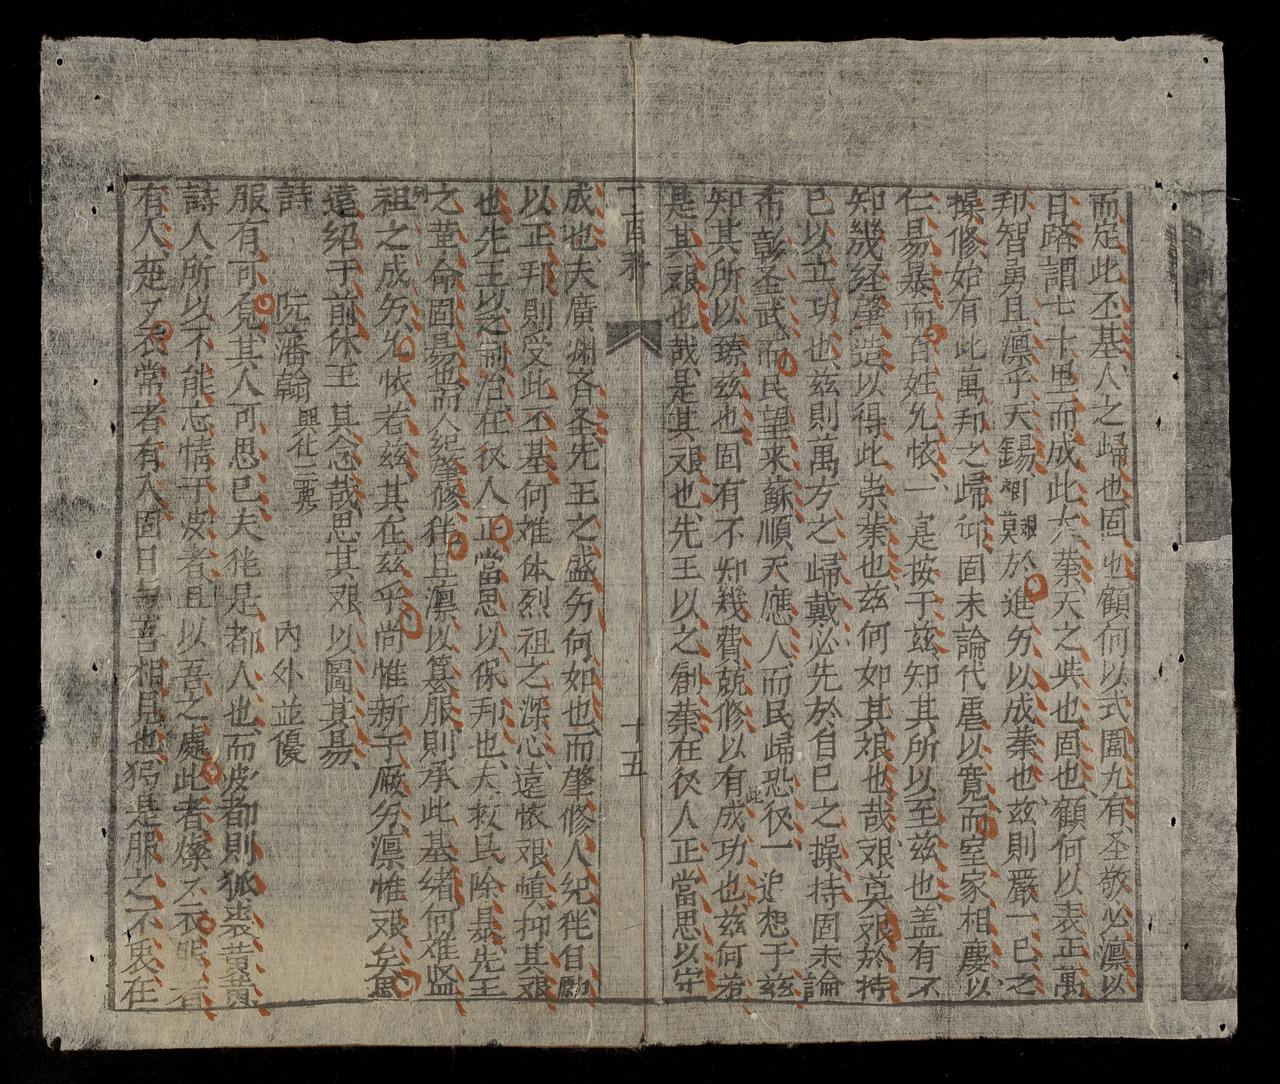 而定此丕基人之歸也固也顧何以式圍九有圣敬必凜以
日路謂七十里而成此大業天之柴也固也顧何以表正萬
邦智勇且凜乎天錫 艱莫於進夯以成業也兹則嚴一已之
操修始有此萬邦之歸仰固未論代虐以寬而室家相慶以
仁易暴而百姓允懷一是按于兹知其所以至兹也盖有不
知幾经肇造以得此崇業也兹何如其艰也哉艰莫艰於持
已以立功也兹則萬方之歸戴必先於自已之操持固未論
布彰圣武而民望来蘇順天應人而民歸恐後一追想于兹
知其所以臻兹也固有不知幾費兢修以有成功也兹何若
是其艰也哉是其艰也先王以之創業在後人正當思以守
十五
成也夫廣渊斉圣先王之盛夯何如也而肇修人紀 自
以正邦則受此丕基何难体烈祖之深心遠懷艰慎抑其艰
也先王以之制治在後人正當思以保邦也夫救民除暴先王
之堇命固易也而人紀肇修 且凜以篡服則承此基緒何难监
祖之成夯允懷者兹其在兹乎尚惟新于厥夯凜惟艰矣焉
遠紹于前休王其念哉思其艰以圖其易
詩 阮藩翰 内外並優
服有可覔其人可思已夫 是都人也而彼都則狐裘黄黄
詩人所以不能忘情于彼者且以吾之處此者燦之衣服者
有人楚之衣裳者有人固日与吾相見也 是服之不衷在